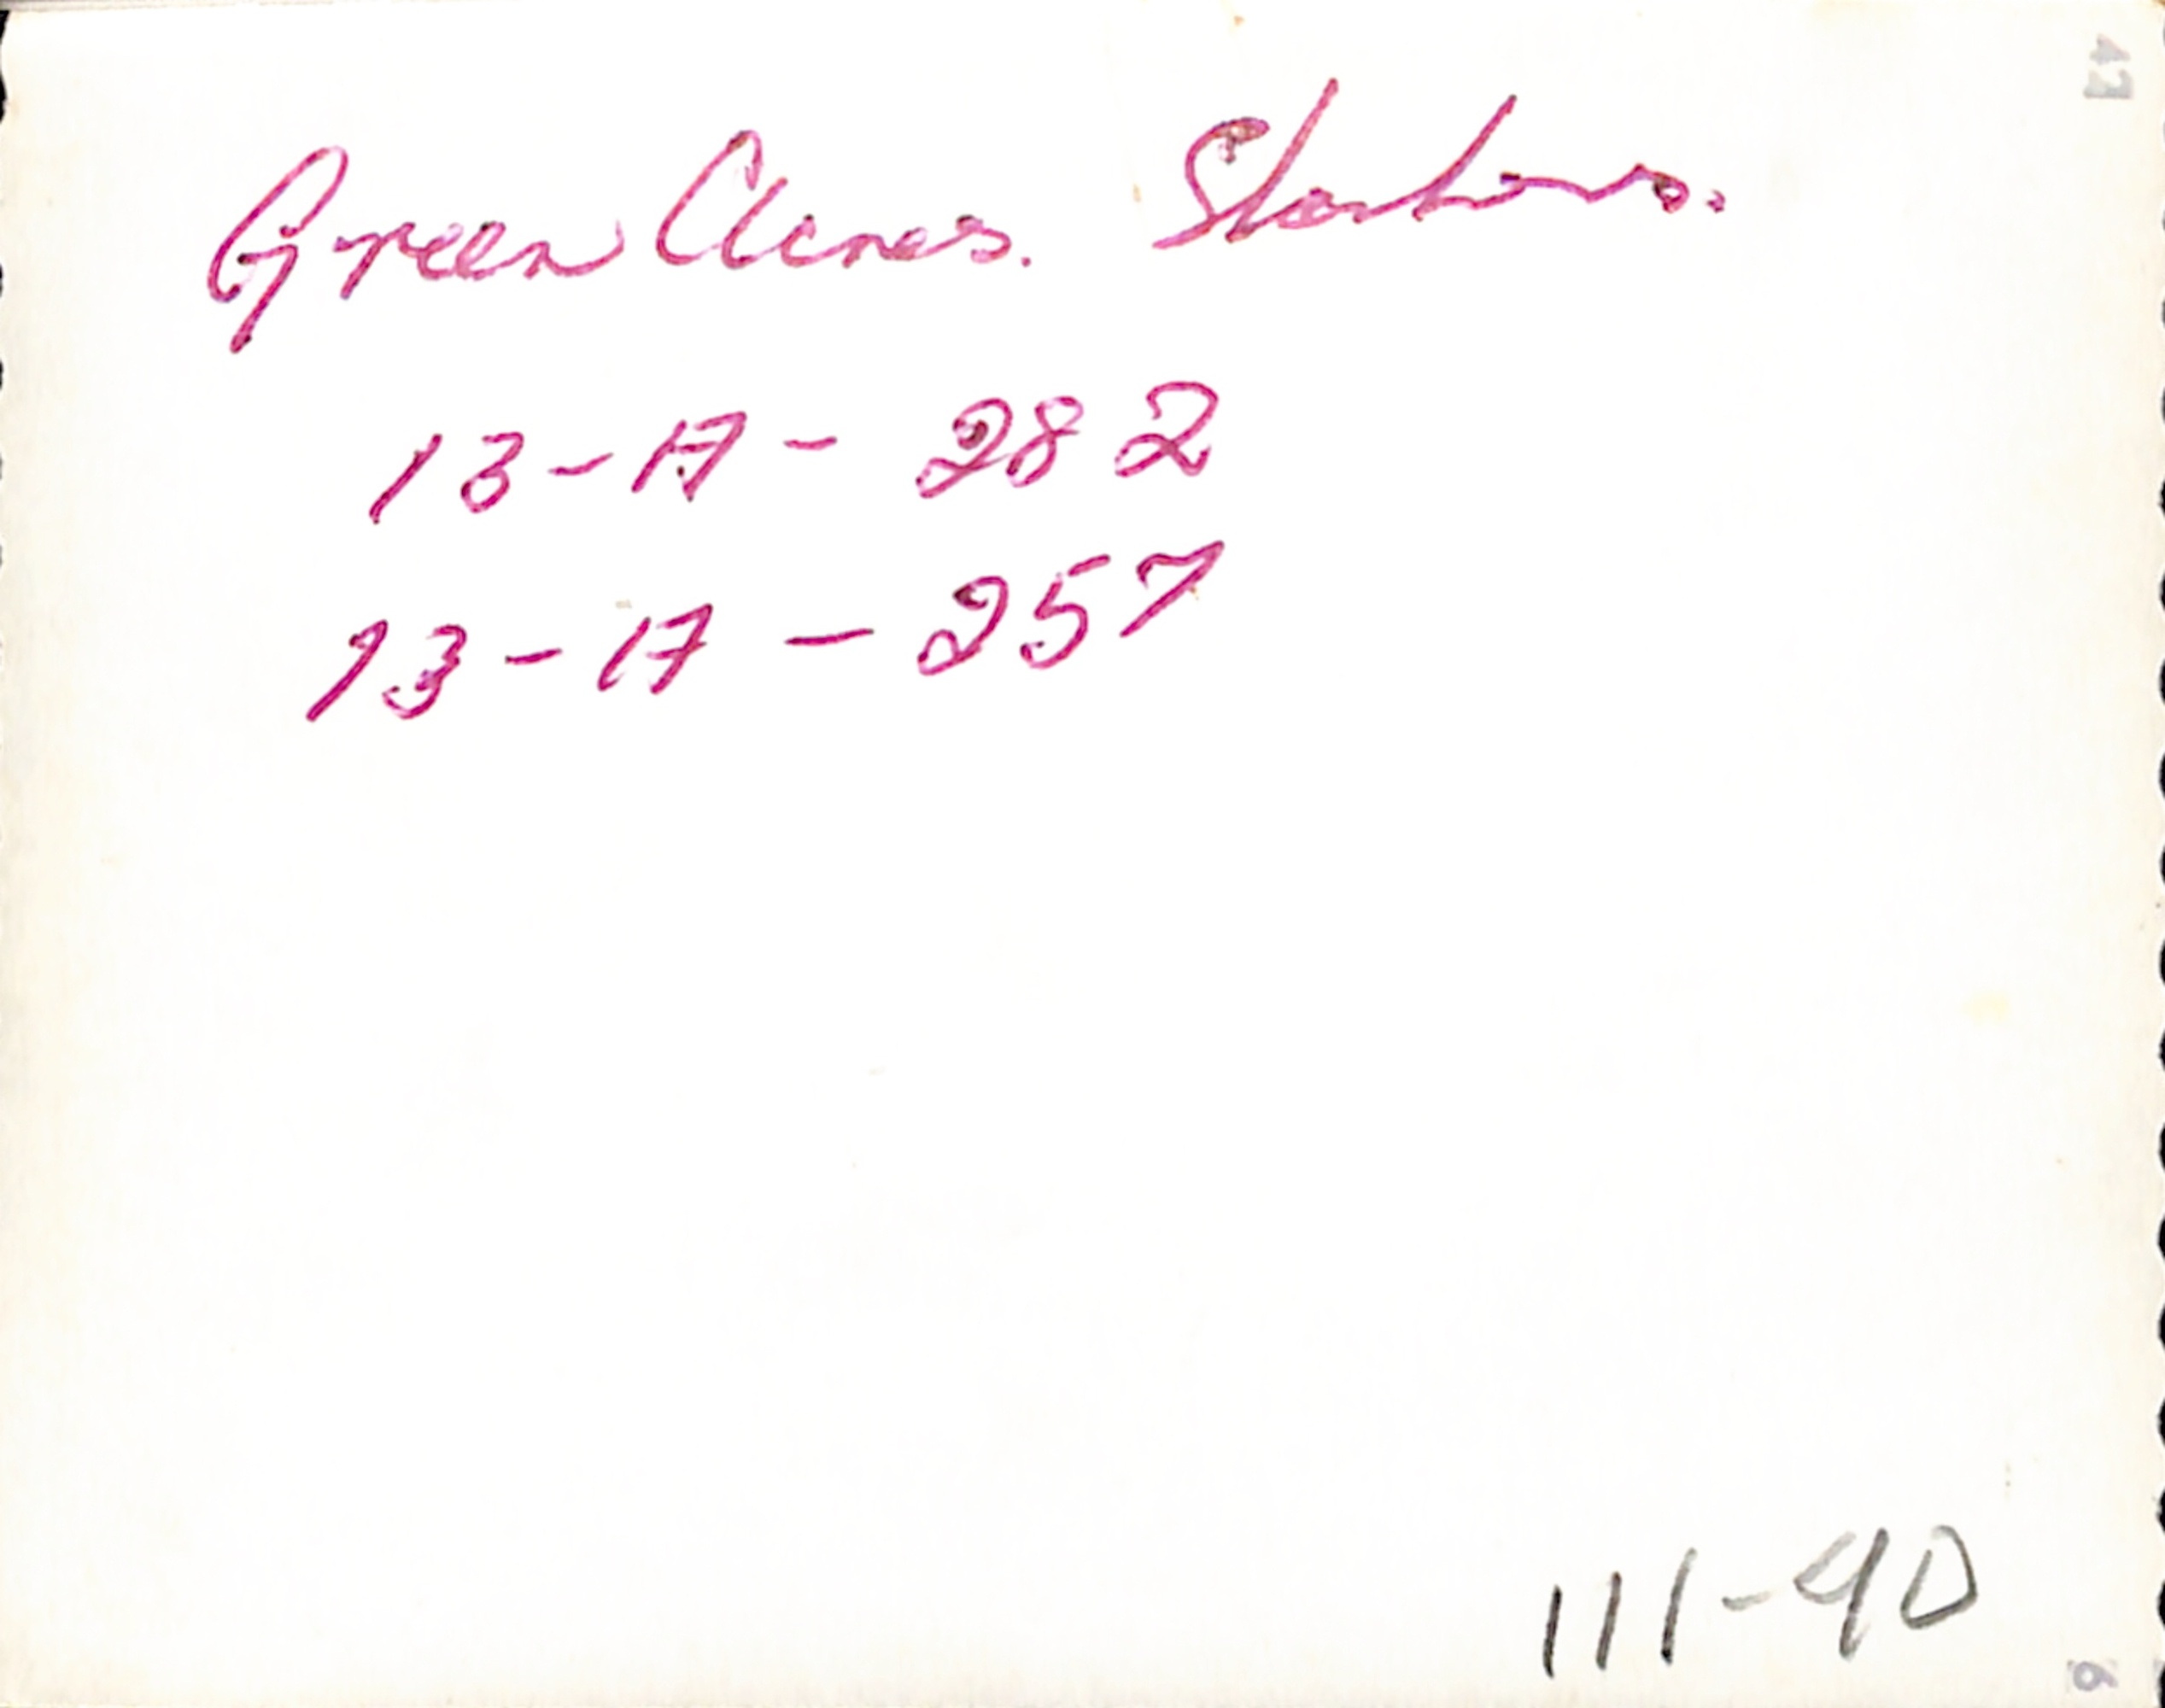 Green Acres. Stations.
13-17- 282
13-17-257
111-40